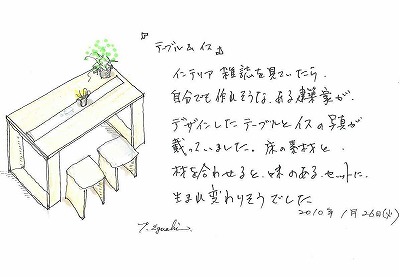 『テーブル & イス』
インテリア 雑誌を見ていたら、
自分でも作れそうな、ある建築家が、
デザインしたテーブルとイスの写真が
載っていました。床の素材と
材を合わせると、味のあるセットに、
生まれ変わりそうでした
2010年 1月26日(火)
T. Eguchi